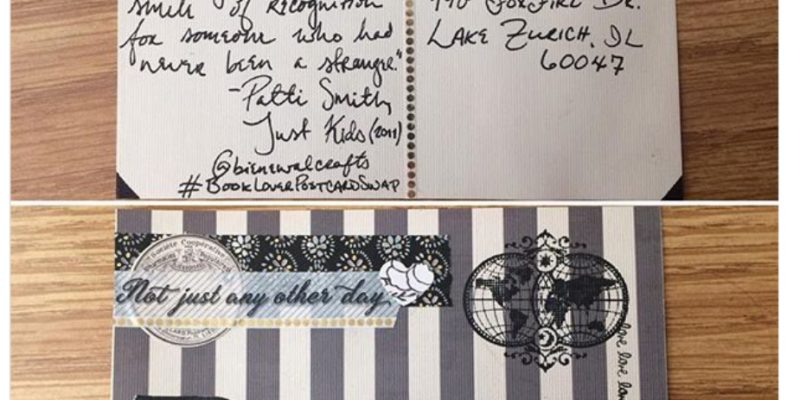 smile of recognition
for someone who had
never been a stranger."
-Patti Smith
Just Kids (2011)
@bienewalcrafts
#BookLoverPostcardSwap
Dr.
Lake Zurich, IL
60047
Société Coopérative
Not just any other day
love love love